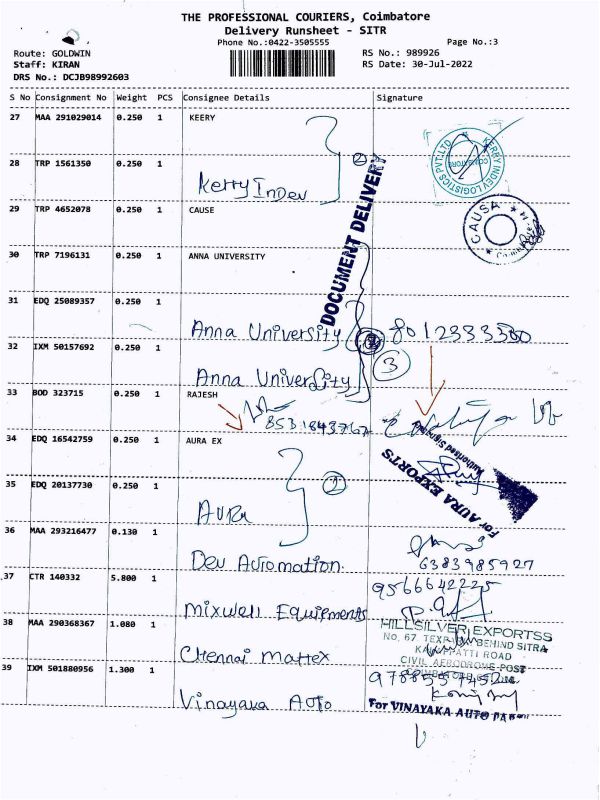 THE PROFESSIONAL COURIERS, Coimbatore
Delivery Runsheet - SITR
Phone No.:0422-3505555 Page No.:3
Route: GOLDWIN RS No.: 989926
Staff: KIRAN RS Date: 30-Jul-2022
DRS No.: DCJB98992603
S No Consignment No Weight PCS Consignee Details Signature
27 MAA 291029014 0.250 1 KEERY
KERRY INDEV LOGISTICS PVT.LTD
COIMBATORE
28 TRP 1561350 0.250 1
Kerry InDev
2
DOCUMENT DELIVERY
29 TRP 4652078 0.250 1 CAUSE
CAUSA
30 TRP 7196131 0.250 1 ANNA UNIVERSITY
31 EDQ 25089357 0.250 1
Anna University 8012333300
32 IXM 50157692 0.250 1
Anna University 3
33 BOD 323715 0.250 1 RAJESH
8531843767
34 EDQ 16542759 0.250 1 AURA EX
For AURA EXPORTS
Authorised Signatory
35 EDQ 20137730 0.250 1
AURA 2
36 MAA 293216477 0.130 1
Dev Automation 6383985927
37 CTR 140332 5.800 1
9566642225
Mixwell Equipments
38 MAA 290368367 1.080 1
HILLSILVER EXPORTSS
No, 67, BEHIND SITRA
ROAD
CIVIL AERODROME POST
Chennai Mattex
39 IXM 501880956 1.300 1
Vinayaka Auto
For VINAYAKA AUTO